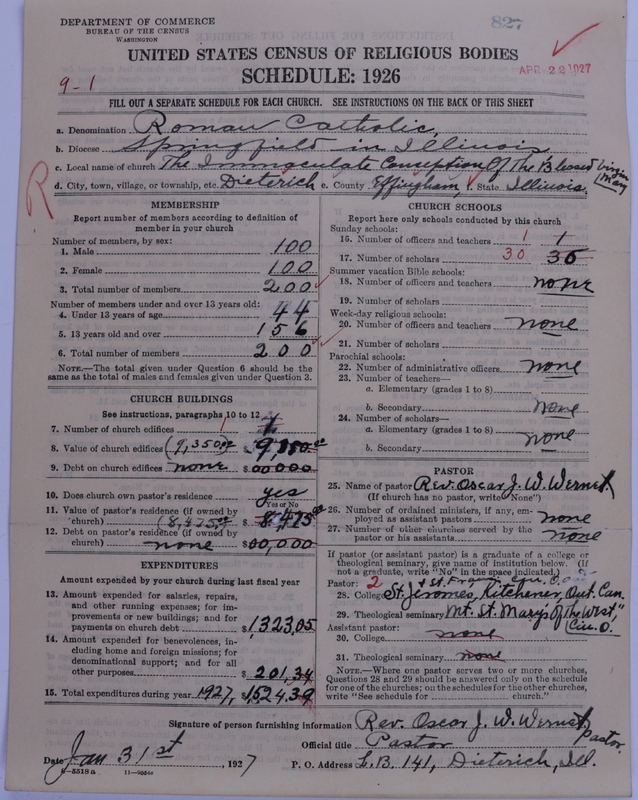 DEPARTMENT OF COMMERCE
BUREAU OF THE CENSUS
WASHINGTON
827
UNITED STATES CENSUS OF RELIGIOUS BODIES
SCHEDULE: 1926
APR 22 1927
9-1
FILL OUT A SEPARATE SCHEDULE FOR EACH CHURCH. SEE INSTRUCTIONS ON THE BACK OF THIS SHEET
a. Denomination Roman Catholic
b. Diocese Springfield in Illinois
c. Local name of church The Immaculate Conception Of The Blessed Virgin Mary
d. City, town, village, or township, etc. Dieterich e. County Effingham f. State Illinois.
R
MEMBERSHIP
Report number of members according to definition of member in your church
Number of members, by sex:
1. Male 100
2. Female 100
3. Total number of members 200
Number of members under and over 13 years old:
4. Under 13 years of age 44
5. 13 years old and over 156
6. Total number of members 200
NOTE.—The total given under Question 6 should be the same as the total of males and females given under Question 3.
CHURCH BUILDINGS
See instructions, paragraphs 10 to 12
7. Number of church edifices 1 1
8. Value of church edifices (9,350.00 $9,350.00
9. Debt on church edifices none $00,000
10. Does church own pastor's residence yes
Yes or No
11. Value of pastor's residence (if owned by church) (8,475.00 $8,475.00
12. Debt on pastor's residence (if owned by church) none $00,000
EXPENDITURES
Amount expended by your church during last fiscal year
13. Amount expended for salaries, repairs, and other running expenses; for improvements or new buildings; and for payments on church debt $1323,05
14. Amount expended for benevolences, including home and foreign missions; for denominational support; and for all other purposes $201,34
15. Total expenditures during year 1927, $1524,39
CHURCH SCHOOLS
Report here only schools conducted by this church
Sunday schools:
16. Number of officers and teachers 1 1
17. Number of scholars 30 30
Summer vacation Bible schools:
18. Number of officers and teachers none
19. Number of scholars
Week-day religious schools:
20. Number of officers and teachers none
21. Number of scholars
Parochial schools:
22. Number of administrative officers none
23. Number of teachers—
a. Elementary (grades 1 to 8)
b. Secondary none
24. Number of scholars—
a. Elementary (grades 1 to 8) none
b. Secondary
PASTOR
25. Name of pastor Rev. Oscar J. W. Wernet
(If church has no pastor, write "None")
26. Number of ordained ministers, if any, employed as assistant pastors none
27. Number of other churches served by the pastor or his assistants none
If pastor (or assistant pastor) is a graduate of a college or theological seminary, give name of institution below. (If not a graduate, write "No" in the space indicated.)
Pastor: 2
28. College St. Jeromes, Kitchener, Out. Can.
29. Theological seminary Mt. St. Marys Of The West" Cin. O.
Assistant pastor:
30. College none
31. Theological seminary none
NOTE.—Where one pastor serves two or more churches, Questions 28 and 29 should be answered only on the schedule for one of the churches; on the schedules for the other churches, write "See schedule for church."
Signature of person furnishing information Rev. Oscar J. W. Wernet Pastor.
Official title Pastor
Date Jan 31st, 1927 P. O. Address L.B. 141, Dieterich, Ill.